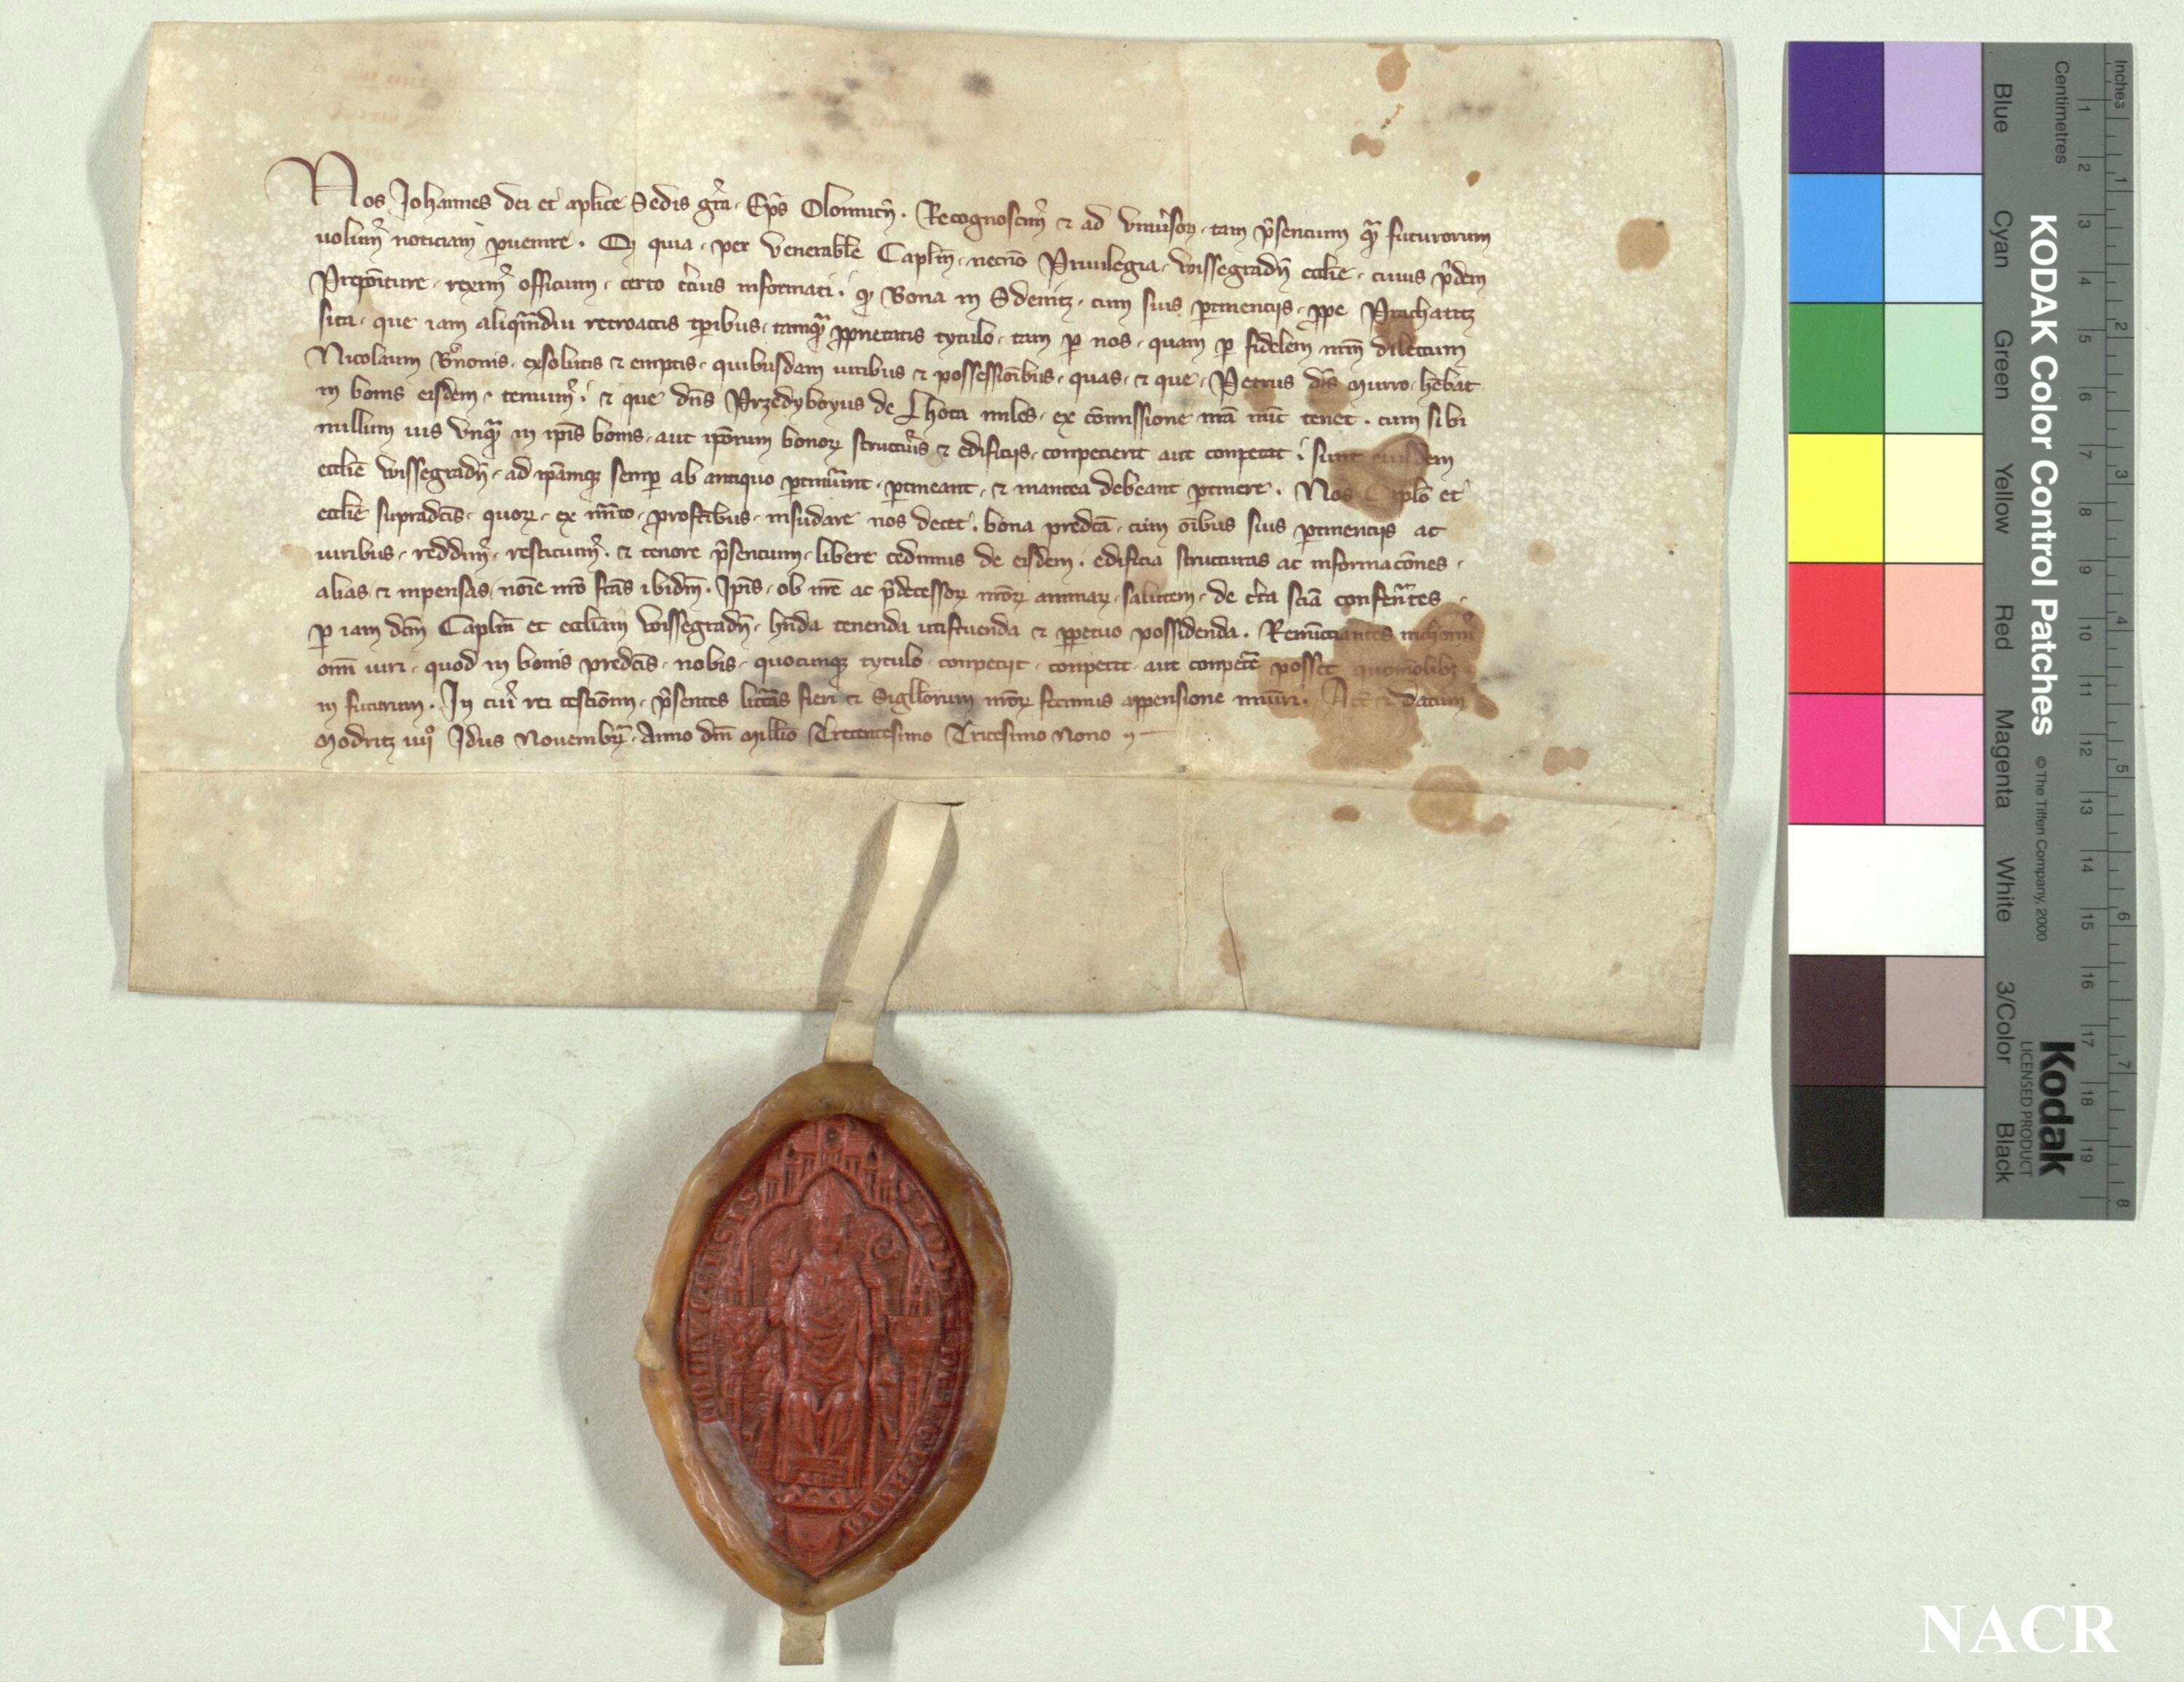 Nos Johannes dei et aplice Sedis gra Eps Olomucn . Recognoscim⁹ ⁊ ad vniusor tam psencium qᷓ futurorum
uolum⁹ noticiam puenire . Qz quia per venerabile Caplm necno Priuilegia wissegradn ecclie cuius pdem
Prepoiture reximꝰ officium certo cicius informati . qz Bona in Sdenitz cum suis ptinencijs ppe Prachatitz
sita que iam aliqmdiu retroactis tpibus tamqᷓ pprietatis tytulo tam p nos quam p fidelem nrm dilectum
Nicolaum exsolutis ⁊ emptis quibusdam iuribus ⁊ possessioibus quas ⁊ que Petrus dcs murro hebat
in bonis eisdem tenuim⁹ . ⁊ que dns Przedyboyus de Lhota miles ex comissione nra nuc tenet . cum sibi
nullum ius vnqᷓ in ipis bonis aut iporum bonor structuris ⁊ edificijs conpecierit aut conpetat . sunt eiusdem
ecclie wissegradn ad ipamqz semp ab antiquo ptinuerunt ptineant ⁊ inantea debeant ptinere . Nos Caplo et
ecclie supradcis quor ex mito profctibus insudare nos decet . bona predca cum oibus suis ptinencijs ac
iuribus reddim⁹ restituim⁹ ⁊ tenore psencium libere cedimus de eisdem . edificia structuras ac informacones
alias ⁊ inpensas noie nro fcas ibidem . Ipis ob nre ac pdecessor nror animar salutem de certa scia conferentes
p iam dcm Caplm et eccliam wissegradn hnda tenenda utifruenda ⁊ ppetuo possidenda . Renuncciantes nichomin⁹
omi iuri quod in bonis predcis nobis quocunqz tytulo conpecijt conpetit aut conpete posset quomolibz
in futurum . In cui⁹ rei testiom psentes litteras fieri ⁊ Sigillorum nror fecimus appensione muniri . Act ⁊ datum
Modritz iiijo Jdus Nouembr Anno dni Millio Trecentesimo Tricesimo Nono
KODAK Color Control Patches
© The Tiffen Company, 2000
Kodak
LICENSED PRODUCT
Blue Cyan Green Yellow Red Magenta White 3/Color Black
Centimetres
1 2 3 4 5 6 7 8 9 10 11 12 13 14 15 16 17 18 19
Inches
1 2 3 4 5 6 7 8
NACR